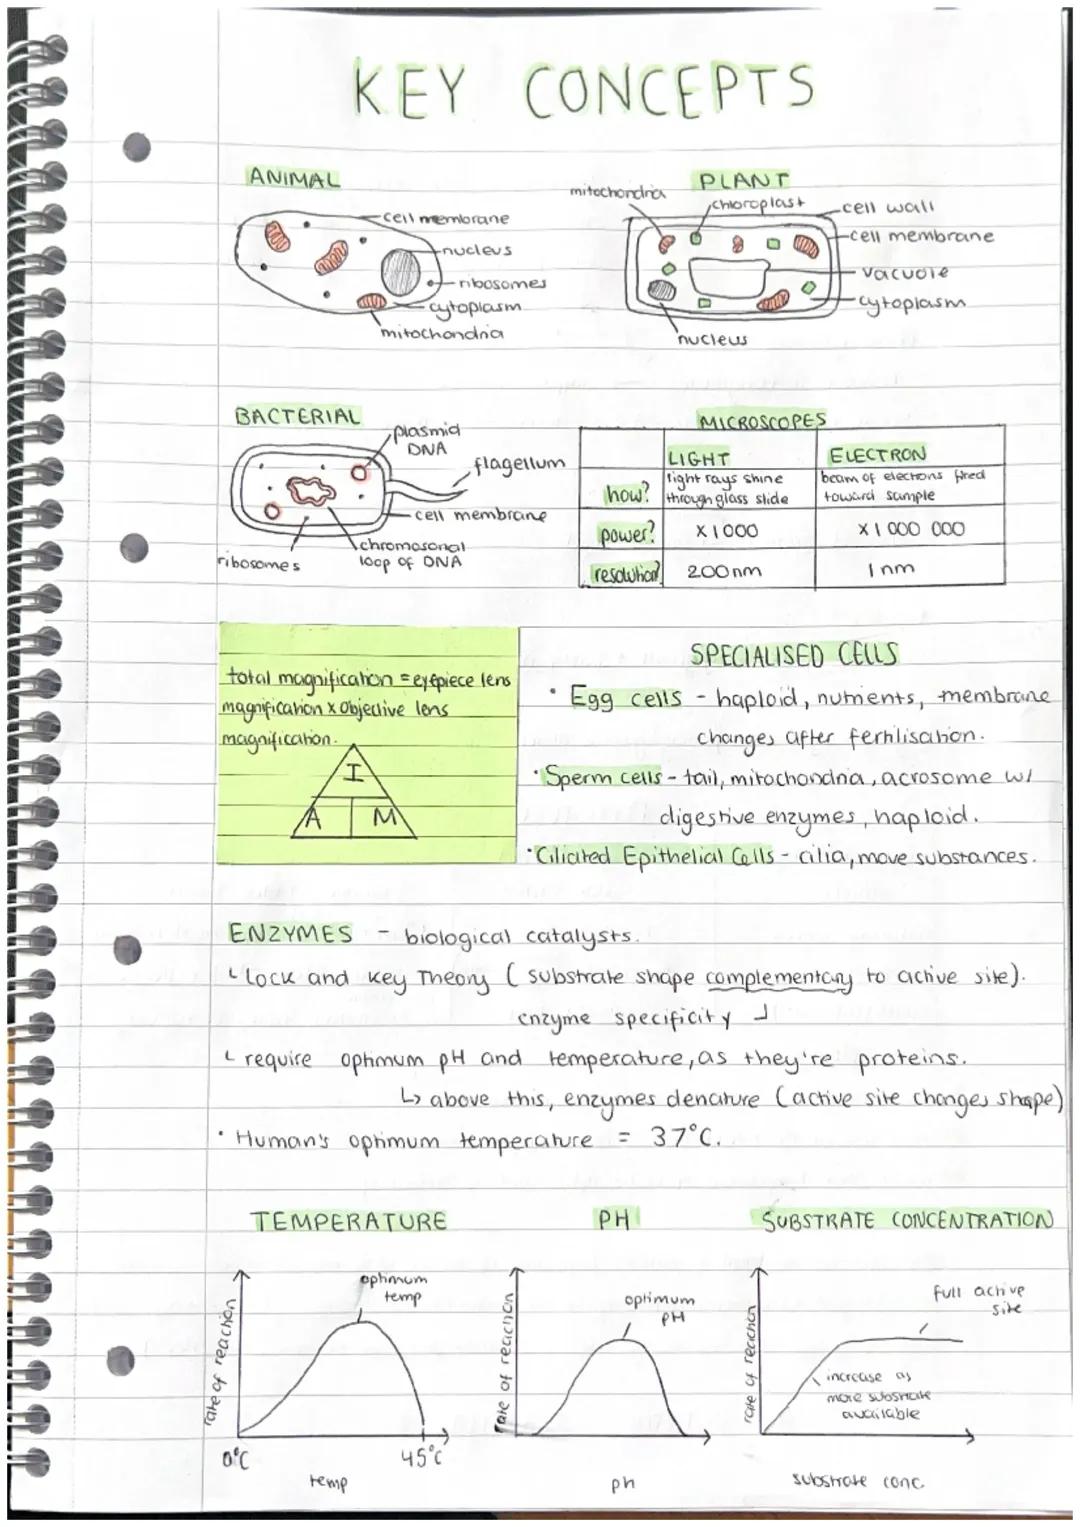 KEY CONCEPTS
ANIMAL
cell membrane
nucleus
ribosomes
cytoplasm
mitochondria
PLANT
mitochondria
chloroplast
cell wall
cell membrane
vacuole
cytoplasm
nucleus
BACTERIAL
plasmid
DNA
flagellum
cell membrane
chromosonal
loop of DNA
ribosomes
MICROSCOPES
LIGHT ELECTRON
how? light rays shine through glass slide beam of electrons fired toward sample
power? x1000 x1 000 000
resolution? 200nm 1nm
total magnification = eyepiece lens
magnification x objective lens
magnification.
I
A M
SPECIALISED CELLS
• Egg cells - haploid, nutrients, membrane
changes after fertilisation.
• Sperm cells - tail, mitochondria, acrosome w/
digestive enzymes, haploid.
• Ciliated Epithelial Cells - cilia, move substances.
ENZYMES - biological catalysts.
Lock and Key Theory (substrate shape complementary to active site).
enzyme specificity
require optimum pH and temperature, as they're proteins.
↳ above this, enzymes denature (active site changes shape)
• Human's optimum temperature = 37°C.
TEMPERATURE
rate of reaction
optimum
temp
0°C 45°C
temp
PH
rate of reaction
optimum
PH
ph
SUBSTRATE CONCENTRATION
rate of reaction
full active
site
increase as
more substrate
available
substrate conc.